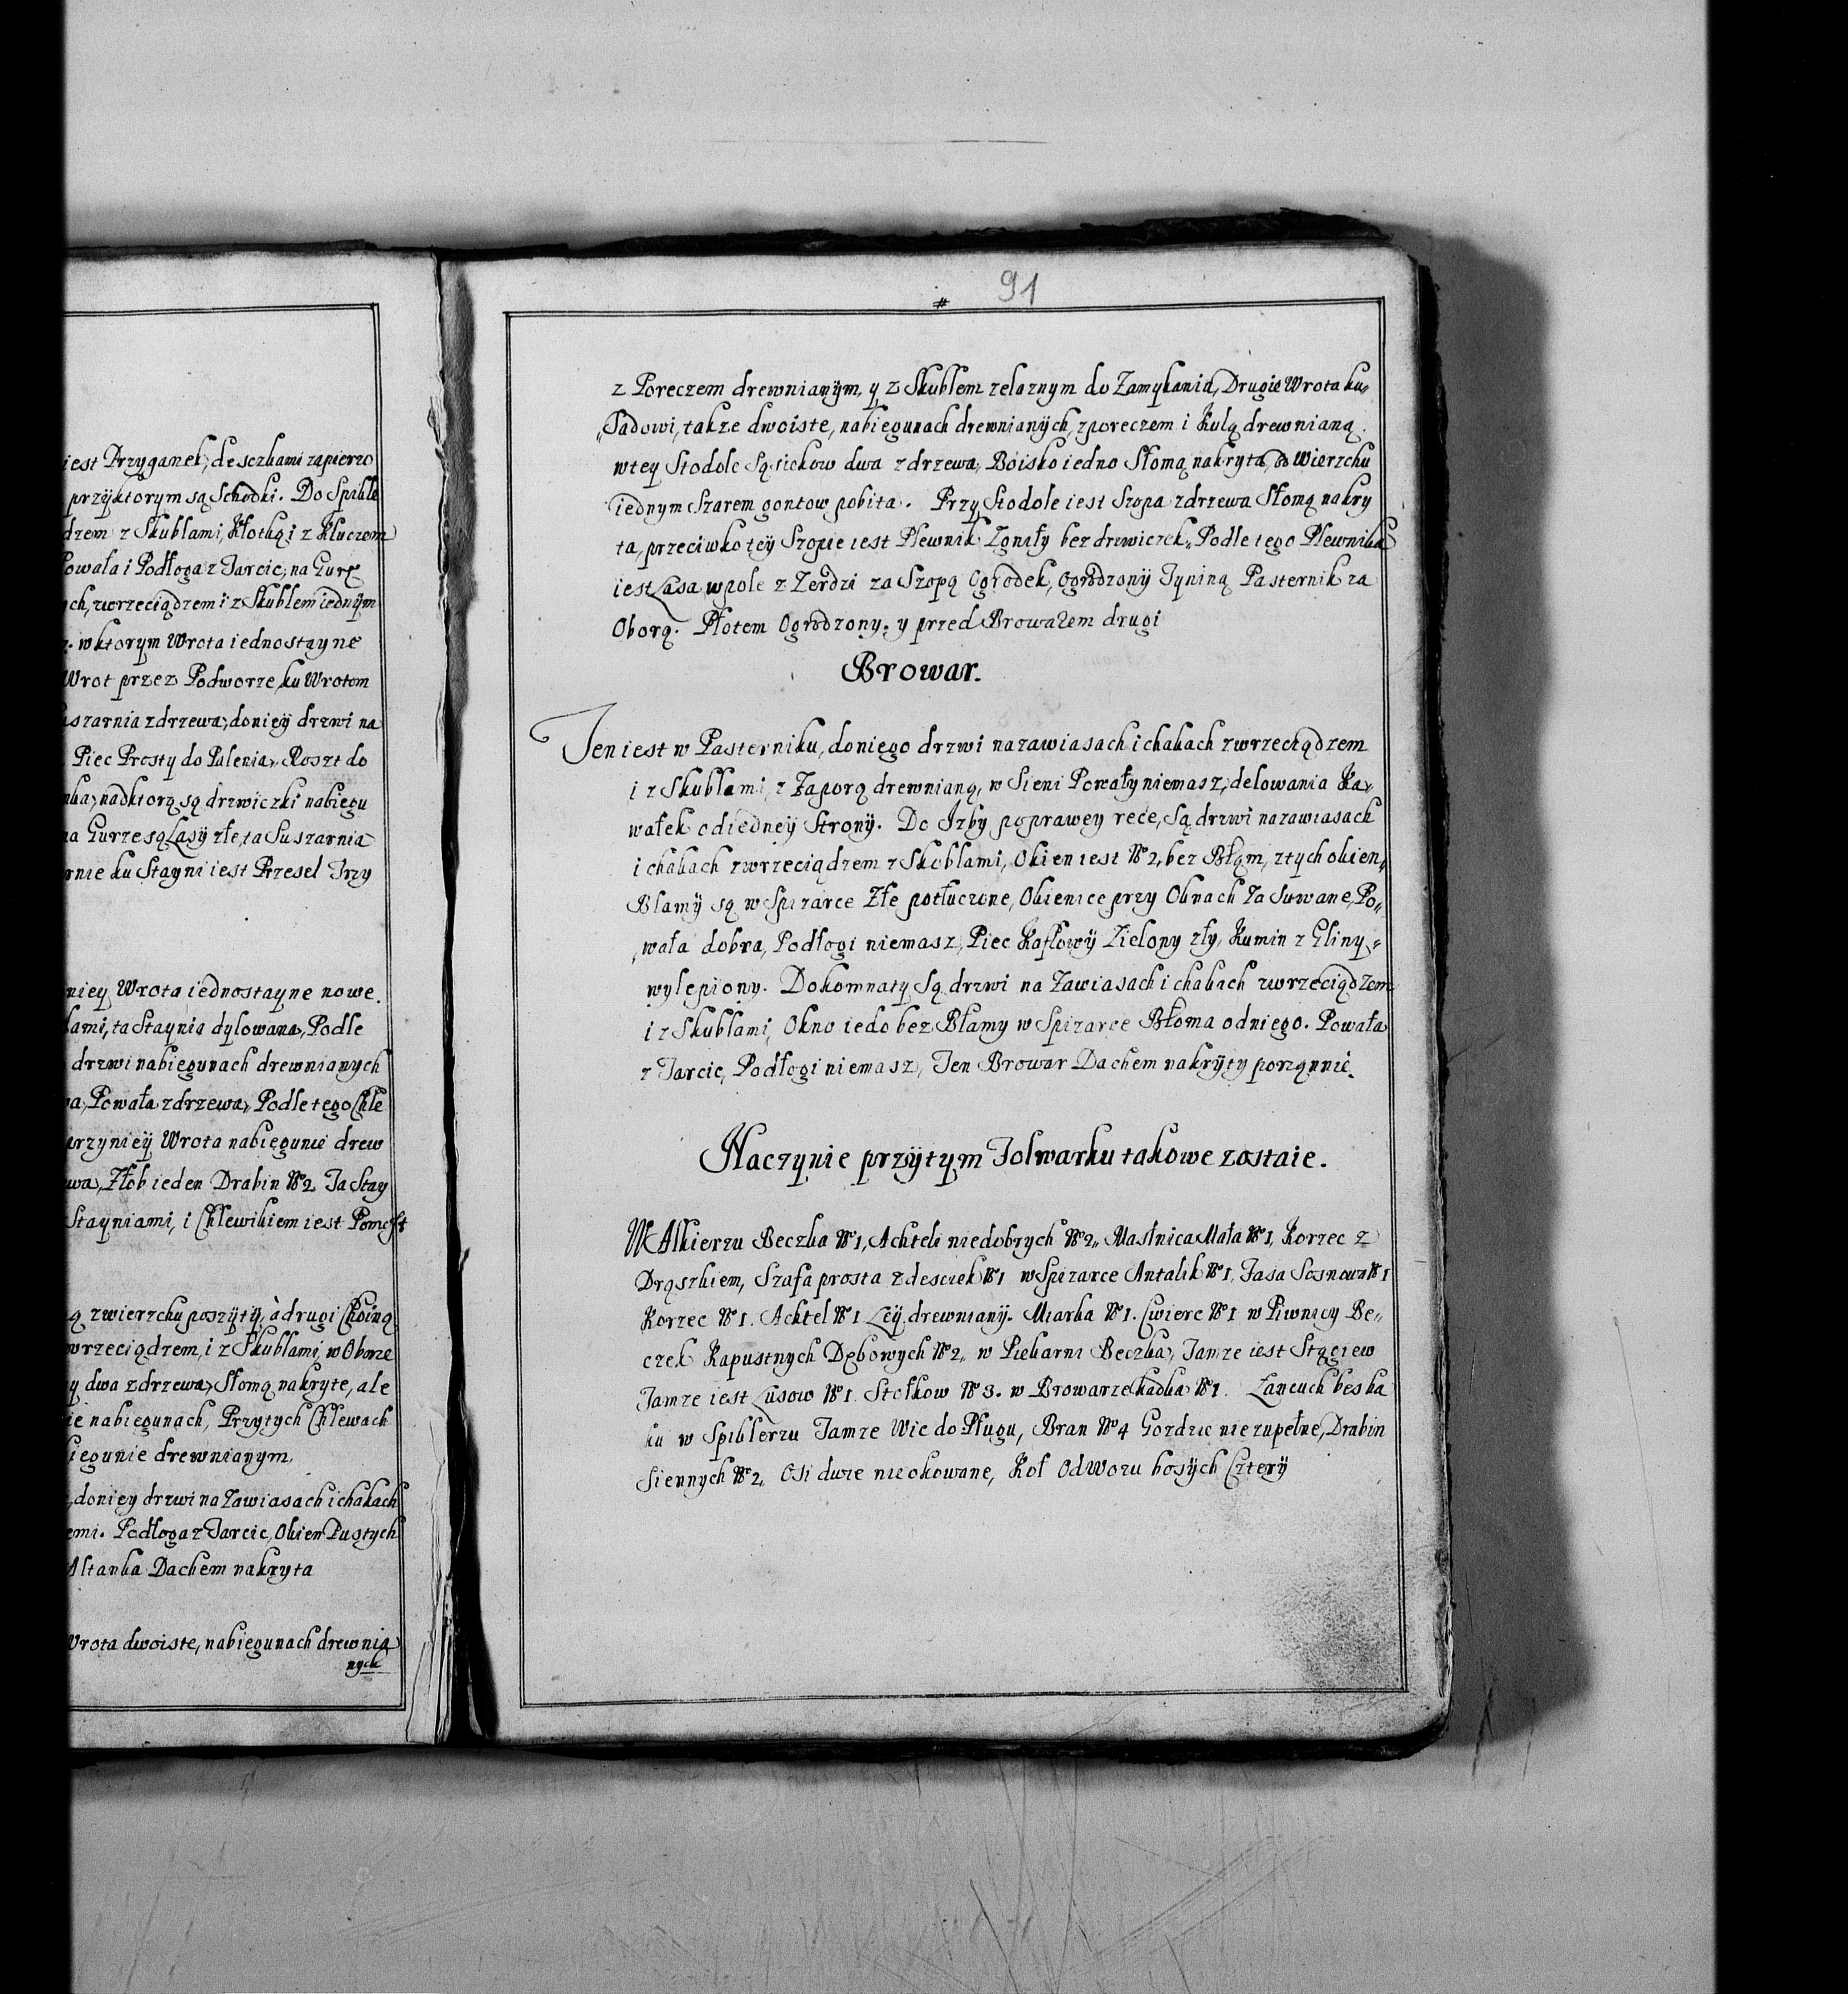 iest Przyganek, desczkami zapierzo
przyktorym są Schodki. Do Spikle
dzem z Skublami, Kłotką i z Kluczem
Powała i Podłoga z Tarcic, na Gurę
ych, zwrzeciądzem i z Skublem iednym
wktorym Wrota iednostayne
Wrot przez Podworze, ku Wrotom
uszarnia zdrzewa, doniey drzwi na
Piec Prosty do Palenia, Roszt do
nka, nadktorą są drzwiczki nabiegu
na Gurze są Lasy złe, ta Suszarnia
rnie ku Stayni iest Przesel Trzy
niey Wrota iednostayne nowe.
lami, ta Staynia dylowana, Podle
drzwi nabiegunach drewnianych
wa, Powała zdrzewa, Podle tego Chle
arzyniey Wrota nabiegunie drew
wa, Złob ieden Drabin No 2 Ta Stay
Stayniami, i Chlewikiem iest Pomost
ą zwierzchu poszyty, à drugi Choiną
wrzeciądzem, i z Skublami, w Oborze
y dwa zdrzewa, Słomą nakryte, ale
ie nabiegunach, Przytych Chlewach
iegunie drewnianym,
doniey drzwi na Zawiasach ichakach
emi. Podłoga z Tarcic, Okien Pustych
Altanka Dachem nakryta
Wrota dwoiste, nabiegunach drewnia
nych
91
z Poreczem drewnianym, y z Skublem zelaznym do Zamykania, Drugie Wrota ku„
„Sadowi, takze dwoiste, nabiegunach drewnianych, zporeczem i Kulą drewnianą.
wtey Stodole Sąsiekow dwa zdrzewa, Boisko iedno Słomą nakryta, Wierzchu
iednym Szarem gontow pobita. Przy Stodole iest Szopa zdrzewa Słomą nakry
ta, przeciwko tey Szopie iest Plewnik Zgniły bez drzwiczek„ Podle tego Plewnika
iest Lasa wpole z Zerdzi za Szopą Ogrodek, Ogrodzony Tyniną Pasternik za
Oborą. Płotem Ogrodzony; y przed Browarem drugi
Browar.
Ten iest w Pasterniku, doniego drzwi nazawiasach ichakach zwrzeciądzem
i z Skublami, z Zaporą drewnianą, w Sieni Powały niemasz, delowania Ka„
wałek odiedney Strony. Do Izby poprawey rece, Są drzwi nazawiasach
i chakach zwrzeciądzem z Skoblami, Okien iest No 2, bez Błąm, ztych okien„
Blamy są w Spizarce Złe potłuczone, Okienice przy Oknach Zasuwane, Po„
„wała dobra, Podłogi niemasz, Piec Kaflowy Zielony zły, Kumin z Gliny„
wylepiony. Dokomnaty Są drzwi na Zawiasach i chakach zwrzeciądzem
i z Skublami, Okno iedo bez Błamy w Spizarce Błoma odniego. Powała
z Tarcic, Podłogi niemasz, Ten Browar Dachem nakryty porządnie.
Naczynie przytym Folwarku takowe zostaie.
W Alkierzu Beczka No 1, Achteli niedobrych No 2„ Maslnica Mała No 1, Korzec z
Drąszkiem, Szafa prosta zdesciek No 1 wSpizarce Antalik No 1, Fasa Sosnowa No 1
Korzec No 1. Achtel No 1 Ley drewniany. Miarka No 1. Cwierc No 1 w Piwnicy Be„
czek Kapustnych Dębowych No 2„ w Piekarni Beczka, Tamze iest Stągiew
Tamze iest Lusow No 1. Stołkow No 3. w Browarze Kadka No 1. Łancuch bes ha
ku w Spiklerzu Tamze Wic do Pługu, Bran No 4 Gozdzie niezupełne, Drabin
Siennych No 2„ Osi dwie nieokowane, Koł Od Wozu bosych Cztery